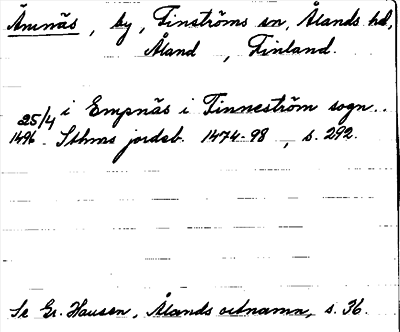 Ämnäs, by, Finströms sn, Ålands hd,
Åland, Finland.
25/4 i Empnäs i Finneström sogn..
1496. Sthms jordeb. 1474-98, s. 292.
Se Gr. Hausen, Ålands ortnamn, s. 36.